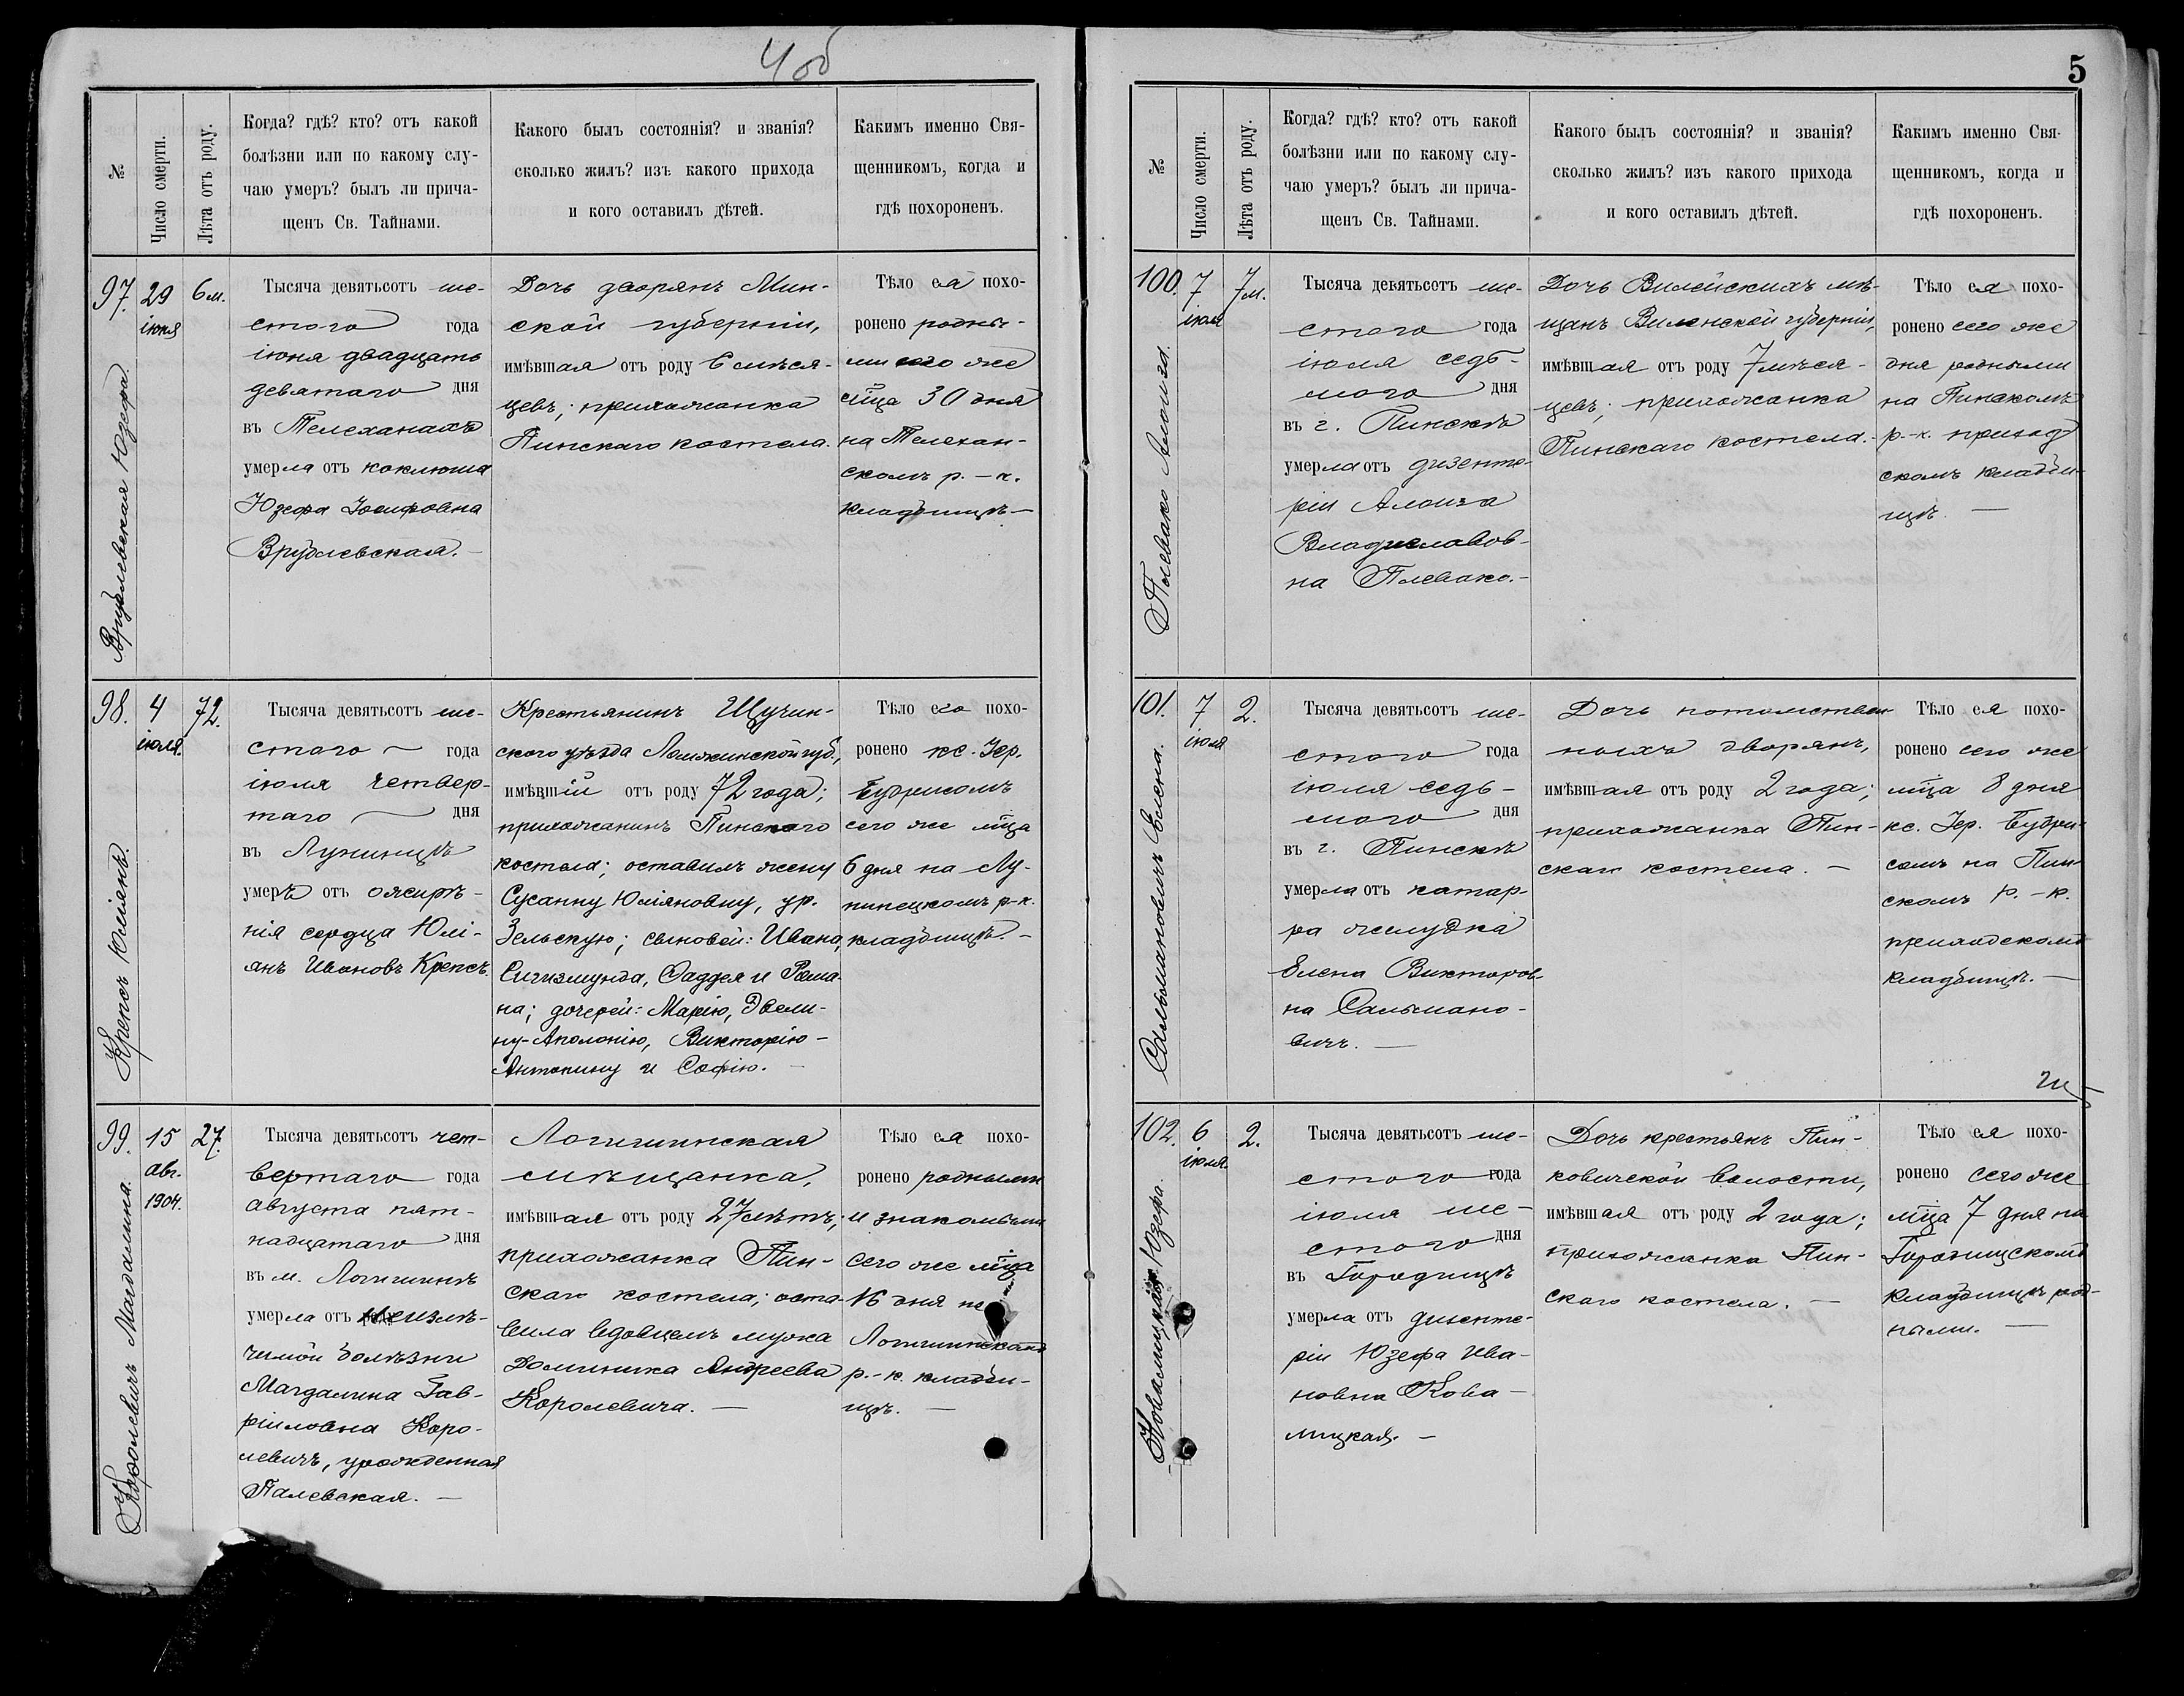 4 об
№
Число смерти.
Лѣта отъ роду.
Когда? гдѣ? кто? отъ какой
болѣзни или по какому слу-
чаю умеръ? былъ ли прича-
щенъ Св. Тайнами.
Какого былъ состоянія? и званія?
сколько жилъ? изъ какого прихода
и кого оставилъ дѣтей.
Какимъ именно Свя-
щенникомъ, когда и
гдѣ похороненъ.
97.
Врублевская Юзефа.
29
іюня
6 м.
Тысяча девятьсотъ ше-
стого года
іюня двадцать
девятаго дня
въ Телеханахъ
умерла отъ коклюша
Юзефа Іосифовна
Врублевская. —
Дочь дворянъ Мин-
ской губерніи,
имѣвшая отъ роду 6 мѣся-
цевъ; прихожанка
Пинскаго костела.
Тѣло ея похо-
ронено родны-
ми сего же
м̃ца 30 дня
на Телехан-
скомъ р.-к.
кладбищѣ —
98.
Крепсъ Юліянъ.
4
іюля.
72.
Тысяча девятьсотъ ше-
стого — года
іюля четвер-
таго — дня
въ Лунинцѣ
умеръ отъ ожирѣ-
нія сердца Юлі-
янъ Ивановъ Крепсъ.
Крестьянинъ Щучин-
ского уѣзда Ломжинской губ.,
имѣвшій отъ роду 72 года;
прихожанинъ Пинскаго
костела; оставилъ жену
Сусанну Юліяновну, ур.
Зельскую; сыновей: Ивана,
Сигизмунда, Фаддея и Рома-
на; дочерей: Марію, Эвели-
ну-Аполонію, Викторію-
Антонину и Софію. —
Тѣло его похо-
ронено кс. Іер.
Будрисомъ
сего же м̃ца
6 дня на Лу-
нинецкомъ р-к.
кладбищѣ. —
99.
Королевичъ Магдалина.
15
авг.
1904.
27.
Тысяча девятьсотъ чет-
вертаго года
августа пят-
надцатаго дня
въ м. Логишинѣ
умерла отъ неизлѣ-
чимой болѣзни
Магдалина Гав-
ріиловна Коро-
левичъ, урожденная
Палевская. —
Логишинская
мѣщанка,
имѣвшая отъ роду 27 лѣтъ;
прихожанка Пин-
скаго костела; оста-
вила вдовцемъ мужа
Доминика Андреева
Королевича. —
Тѣло ея похо-
ронено родными
и знакомыми
сего же м̃ца
16 дня на
Логишинскомъ
р.-к. кладби-
щѣ. —
5
№
Число смерти.
Лѣта отъ роду.
Когда? гдѣ? кто? отъ какой
болѣзни или по какому слу-
чаю умеръ? былъ ли прича-
щенъ Св. Тайнами.
Какого былъ состоянія? и званія?
сколько жилъ? изъ какого прихода
и кого оставилъ дѣтей.
Какимъ именно Свя-
щенникомъ, когда и
гдѣ похороненъ.
100.
Плевако Алоиза.
7
іюля
7 м.
Тысяча девятьсотъ ше-
стого года
іюля седь-
мого дня
въ г. Пинскѣ
умерла отъ дизенте-
ріи Алоиза
Владиславов-
на Плевако. —
Дочь Вилейскихъ мѣ-
щанъ Виленской губерніи,
имѣвшая отъ роду 7 мѣся-
цевъ; прихожанка
Пинскаго костела. —
Тѣло ея похо-
ронено сего же
дня родными
на Пинскомъ
р.-к. приход-
скомъ кладби-
щѣ. —
101.
Сальмановичъ Елена.
7
іюля
2.
Тысяча девятьсотъ ше-
стого года
іюля седь-
мого дня
въ г. Пинскѣ
умерла отъ катар-
ра желудка
Елена Викторов-
на Сальмано-
вичъ. —
Дочь потомствен-
ныхъ дворянъ,
имѣвшая отъ роду 2 года;
прихожанка Пин-
скаго костела. —
Тѣло ея похо-
ронено сего же
м̃ца 8 дня
кс. Іер. Будри-
сомъ на Пин-
скомъ р.-к.
приходскомъ
кладбищѣ. —
102.
Ковалицкая Юзефа.
6
іюля.
2.
Тысяча девятьсотъ ше-
стого года
іюля ше-
стого дня
въ Городищѣ
умерла отъ дизенте-
ріи Юзефа Ива-
новна Кова-
лицкая. —
Дочь крестьянъ Пин-
ковичской волости,
имѣвшая отъ роду 2 года;
прихожанка Пин-
скаго костела. —
Тѣло ея похо-
ронено сего же
м̃ца 7 дня на
Городищскомъ
кладбищѣ род-
ными. —